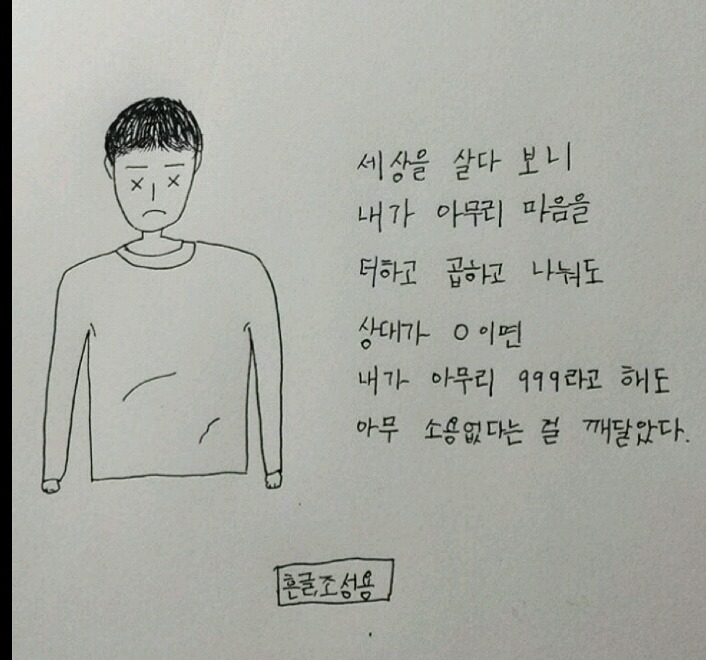 세상을 살다 보니
내가 아무리 마음을
더하고 곱하고 나눠도
상대가 0이면
내가 아무리 999라고 해도
아무 소용없다는 걸 깨달았다.
흔글,조성용